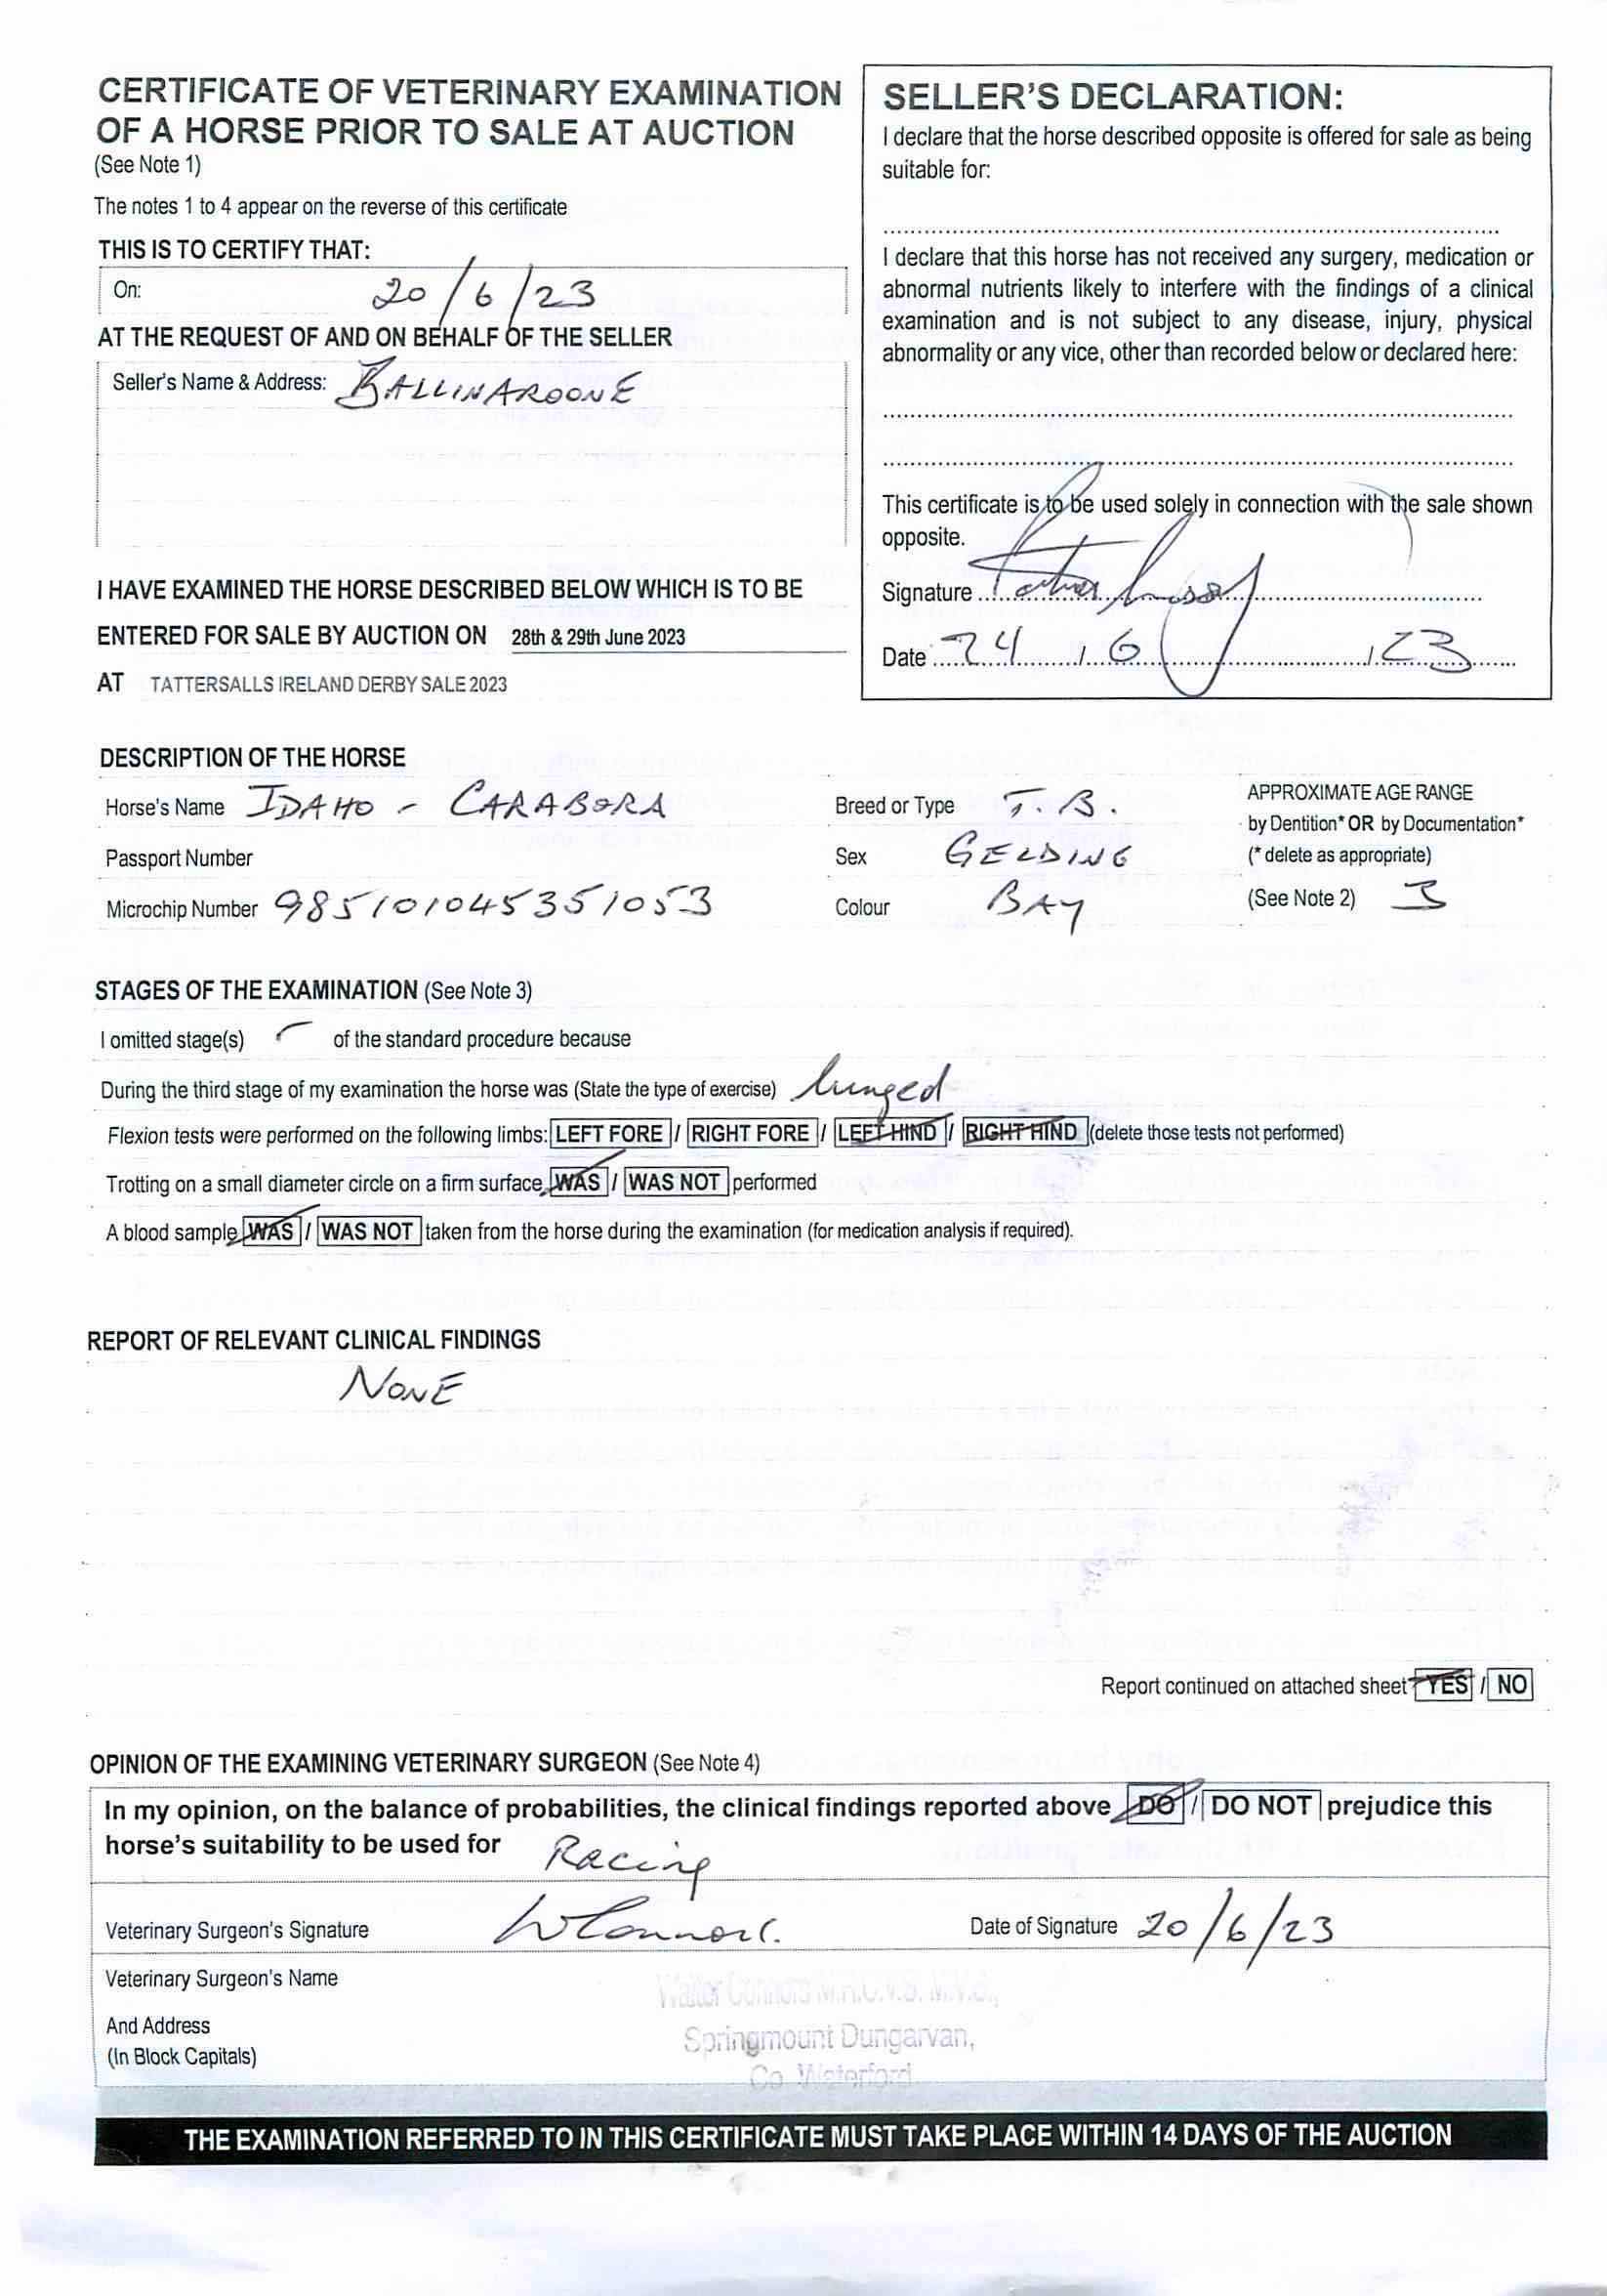 CERTIFICATE OF VETERINARY EXAMINATION
OF A HORSE PRIOR TO SALE AT AUCTION
(See Note 1)
The notes 1 to 4 appear on the reverse of this certificate
THIS IS TO CERTIFY THAT:
On: 20/6/23
AT THE REQUEST OF AND ON BEHALF OF THE SELLER
Seller's Name & Address: BALLINAROONE
I HAVE EXAMINED THE HORSE DESCRIBED BELOW WHICH IS TO BE
ENTERED FOR SALE BY AUCTION ON 28th & 29th June 2023
AT TATTERSALLS IRELAND DERBY SALE 2023
SELLER'S DECLARATION:
I declare that the horse described opposite is offered for sale as being
suitable for:
I declare that this horse has not received any surgery, medication or
abnormal nutrients likely to interfere with the findings of a clinical
examination and is not subject to any disease, injury, physical
abnormality or any vice, other than recorded below or declared here:
This certificate is to be used solely in connection with the sale shown
opposite.
Signature
Date 24 / 6 / 23
DESCRIPTION OF THE HORSE
Horse's Name IDAHO - CARABORA
Passport Number
Microchip Number 985101045351053
Breed or Type T.B.
Sex GELDING
Colour BAY
APPROXIMATE AGE RANGE
by Dentition* OR by Documentation*
(* delete as appropriate)
(See Note 2) 3
STAGES OF THE EXAMINATION (See Note 3)
I omitted stage(s) of the standard procedure because
During the third stage of my examination the horse was (State the type of exercise) lunged
Flexion tests were performed on the following limbs: LEFT FORE / RIGHT FORE / LEFT HIND / RIGHT HIND (delete those tests not performed)
Trotting on a small diameter circle on a firm surface WAS / WAS NOT performed
A blood sample WAS / WAS NOT taken from the horse during the examination (for medication analysis if required).
REPORT OF RELEVANT CLINICAL FINDINGS
NONE
Report continued on attached sheet YES / NO
OPINION OF THE EXAMINING VETERINARY SURGEON (See Note 4)
In my opinion, on the balance of probabilities, the clinical findings reported above DO / DO NOT prejudice this
horse's suitability to be used for Racing
Veterinary Surgeon's Signature W Connors. Date of Signature 20/6/23
Veterinary Surgeon's Name
And Address
(In Block Capitals)
Walter Connors M.R.C.V.S. M.V.B.,
Springmount Dungarvan,
Co. Waterford
THE EXAMINATION REFERRED TO IN THIS CERTIFICATE MUST TAKE PLACE WITHIN 14 DAYS OF THE AUCTION